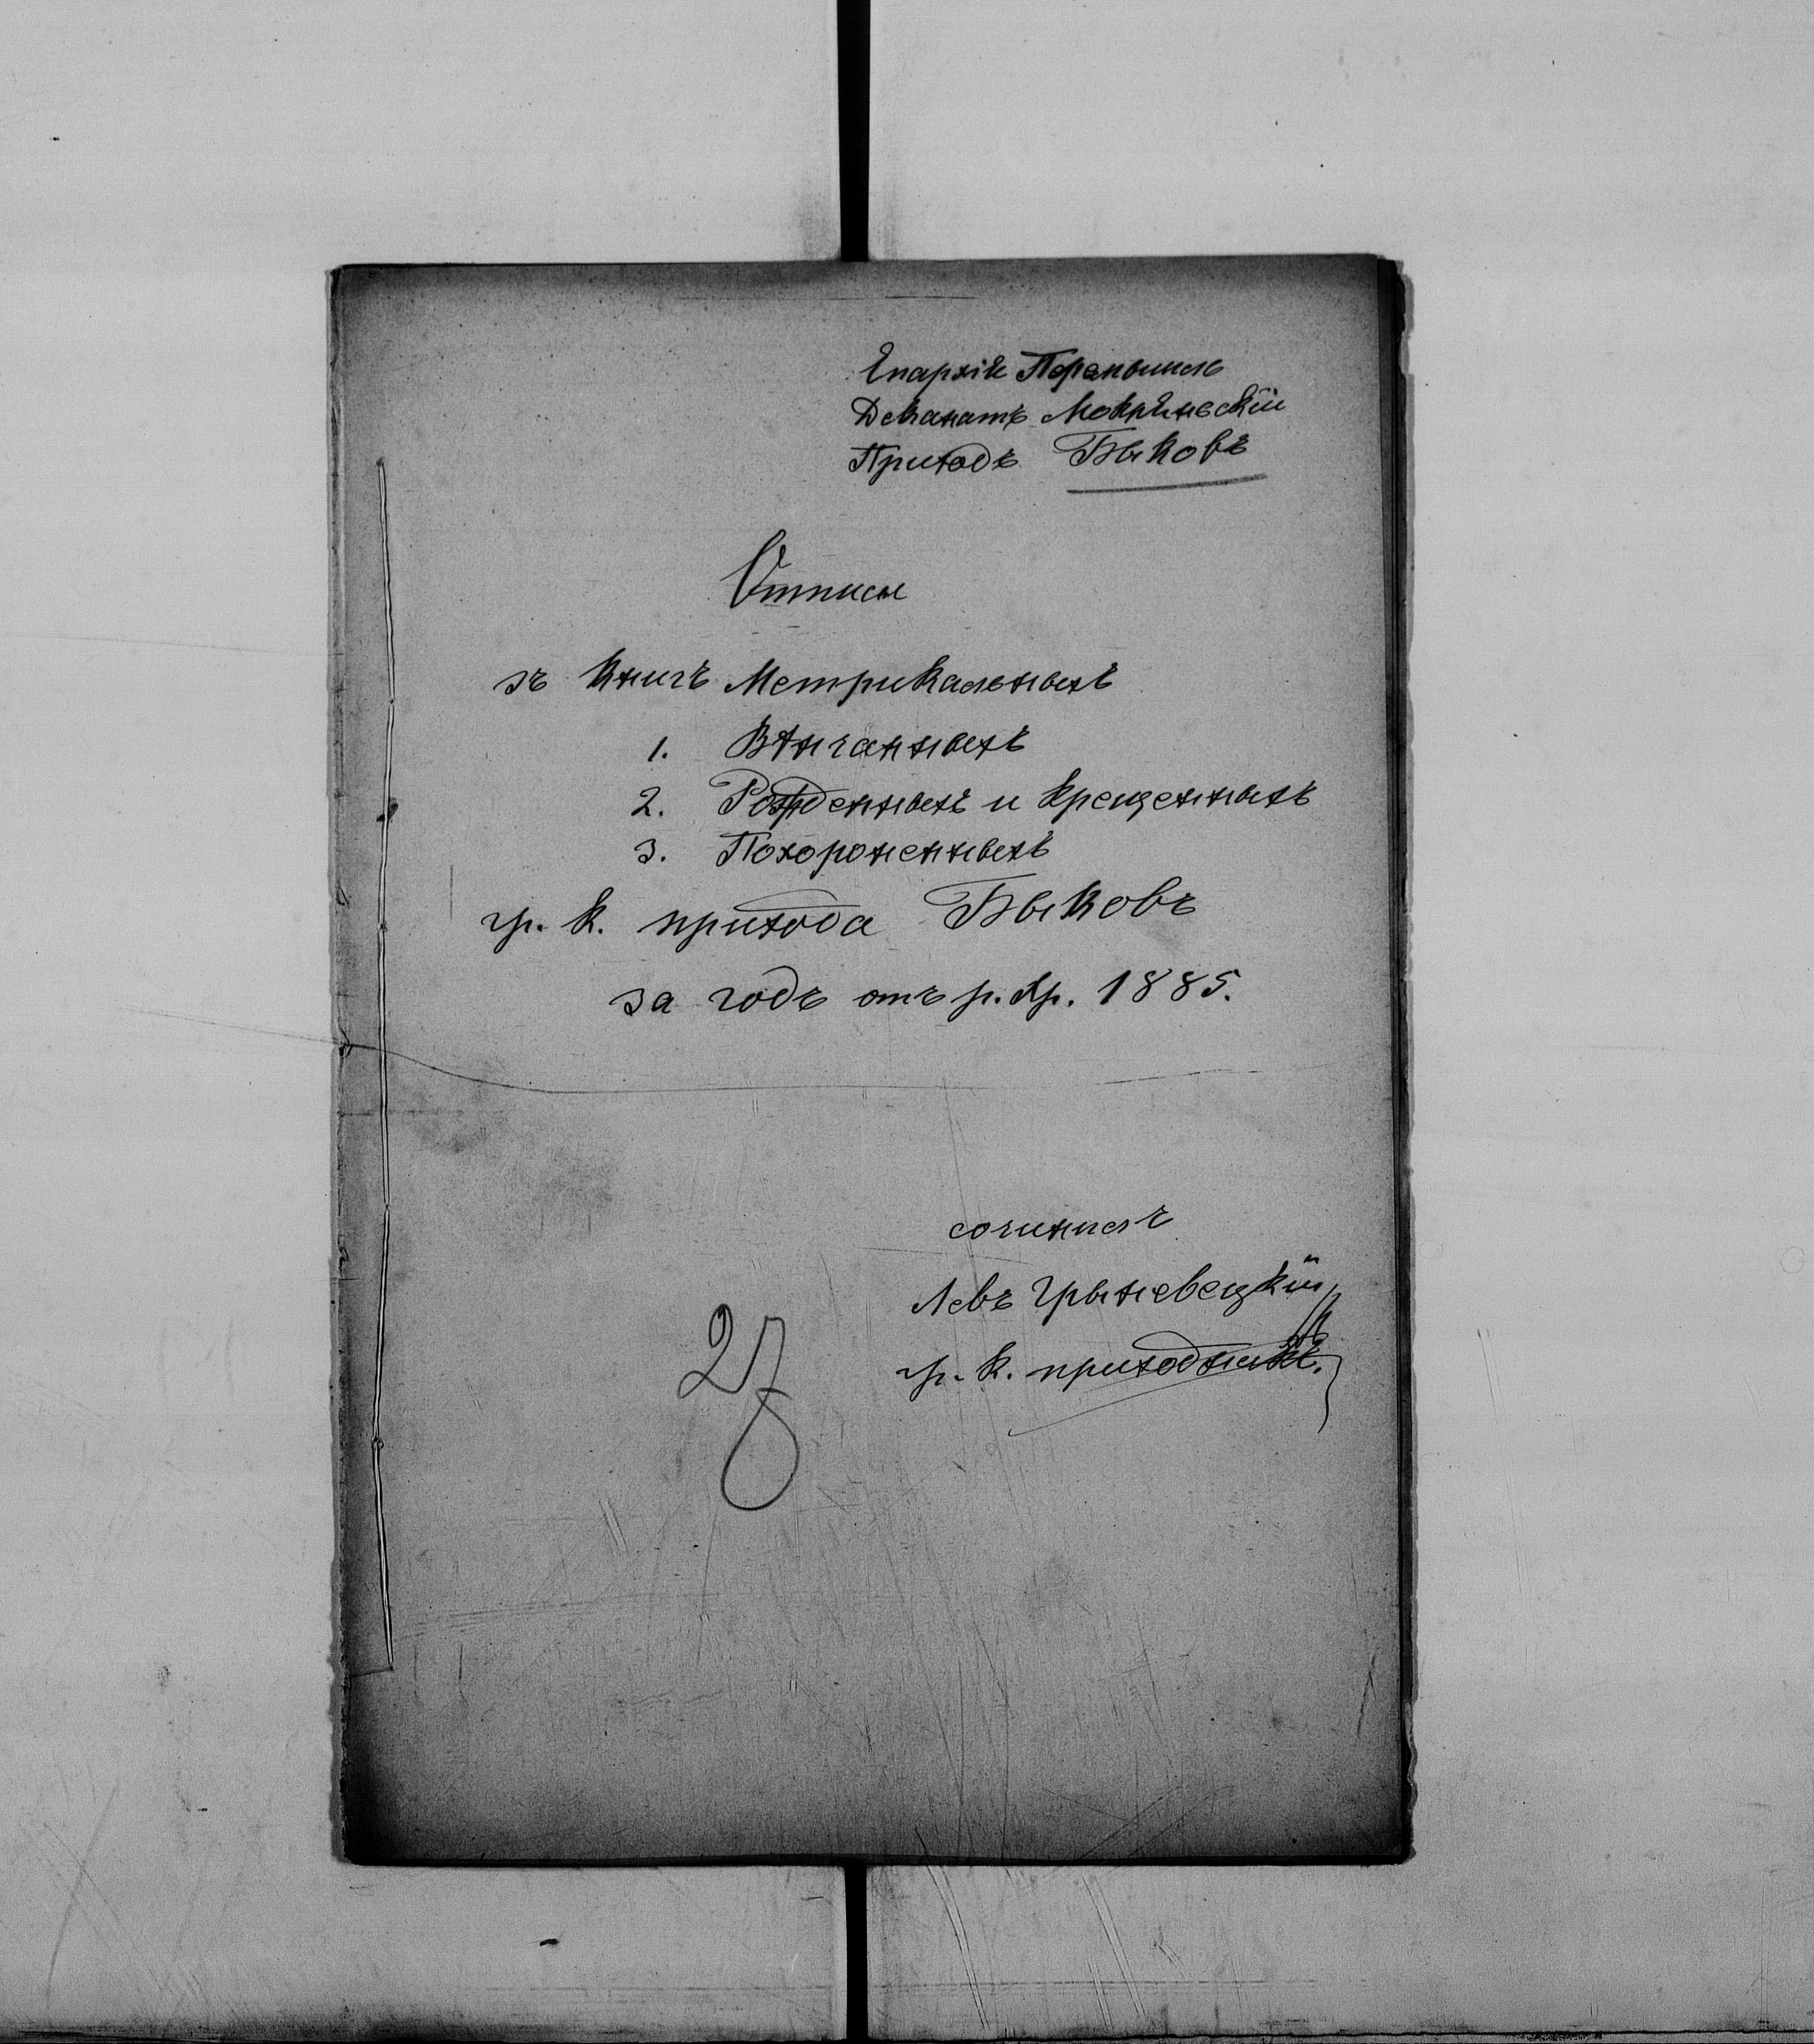 Епархіѣ Перемышль
Деканатъ Мокрянскій
Приходъ Быковъ
Отписы
зъ Книгъ Метрикальныхъ
1. Вѣнчанныхъ
2. Рожденныхъ и Крещенныхъ
3. Похороненныхъ
гр. к. прихода Быковъ
за годъ отъ р. Хр. 1885.
сочинилъ
Левъ Грыневецкій
гр. к. приходникъ.